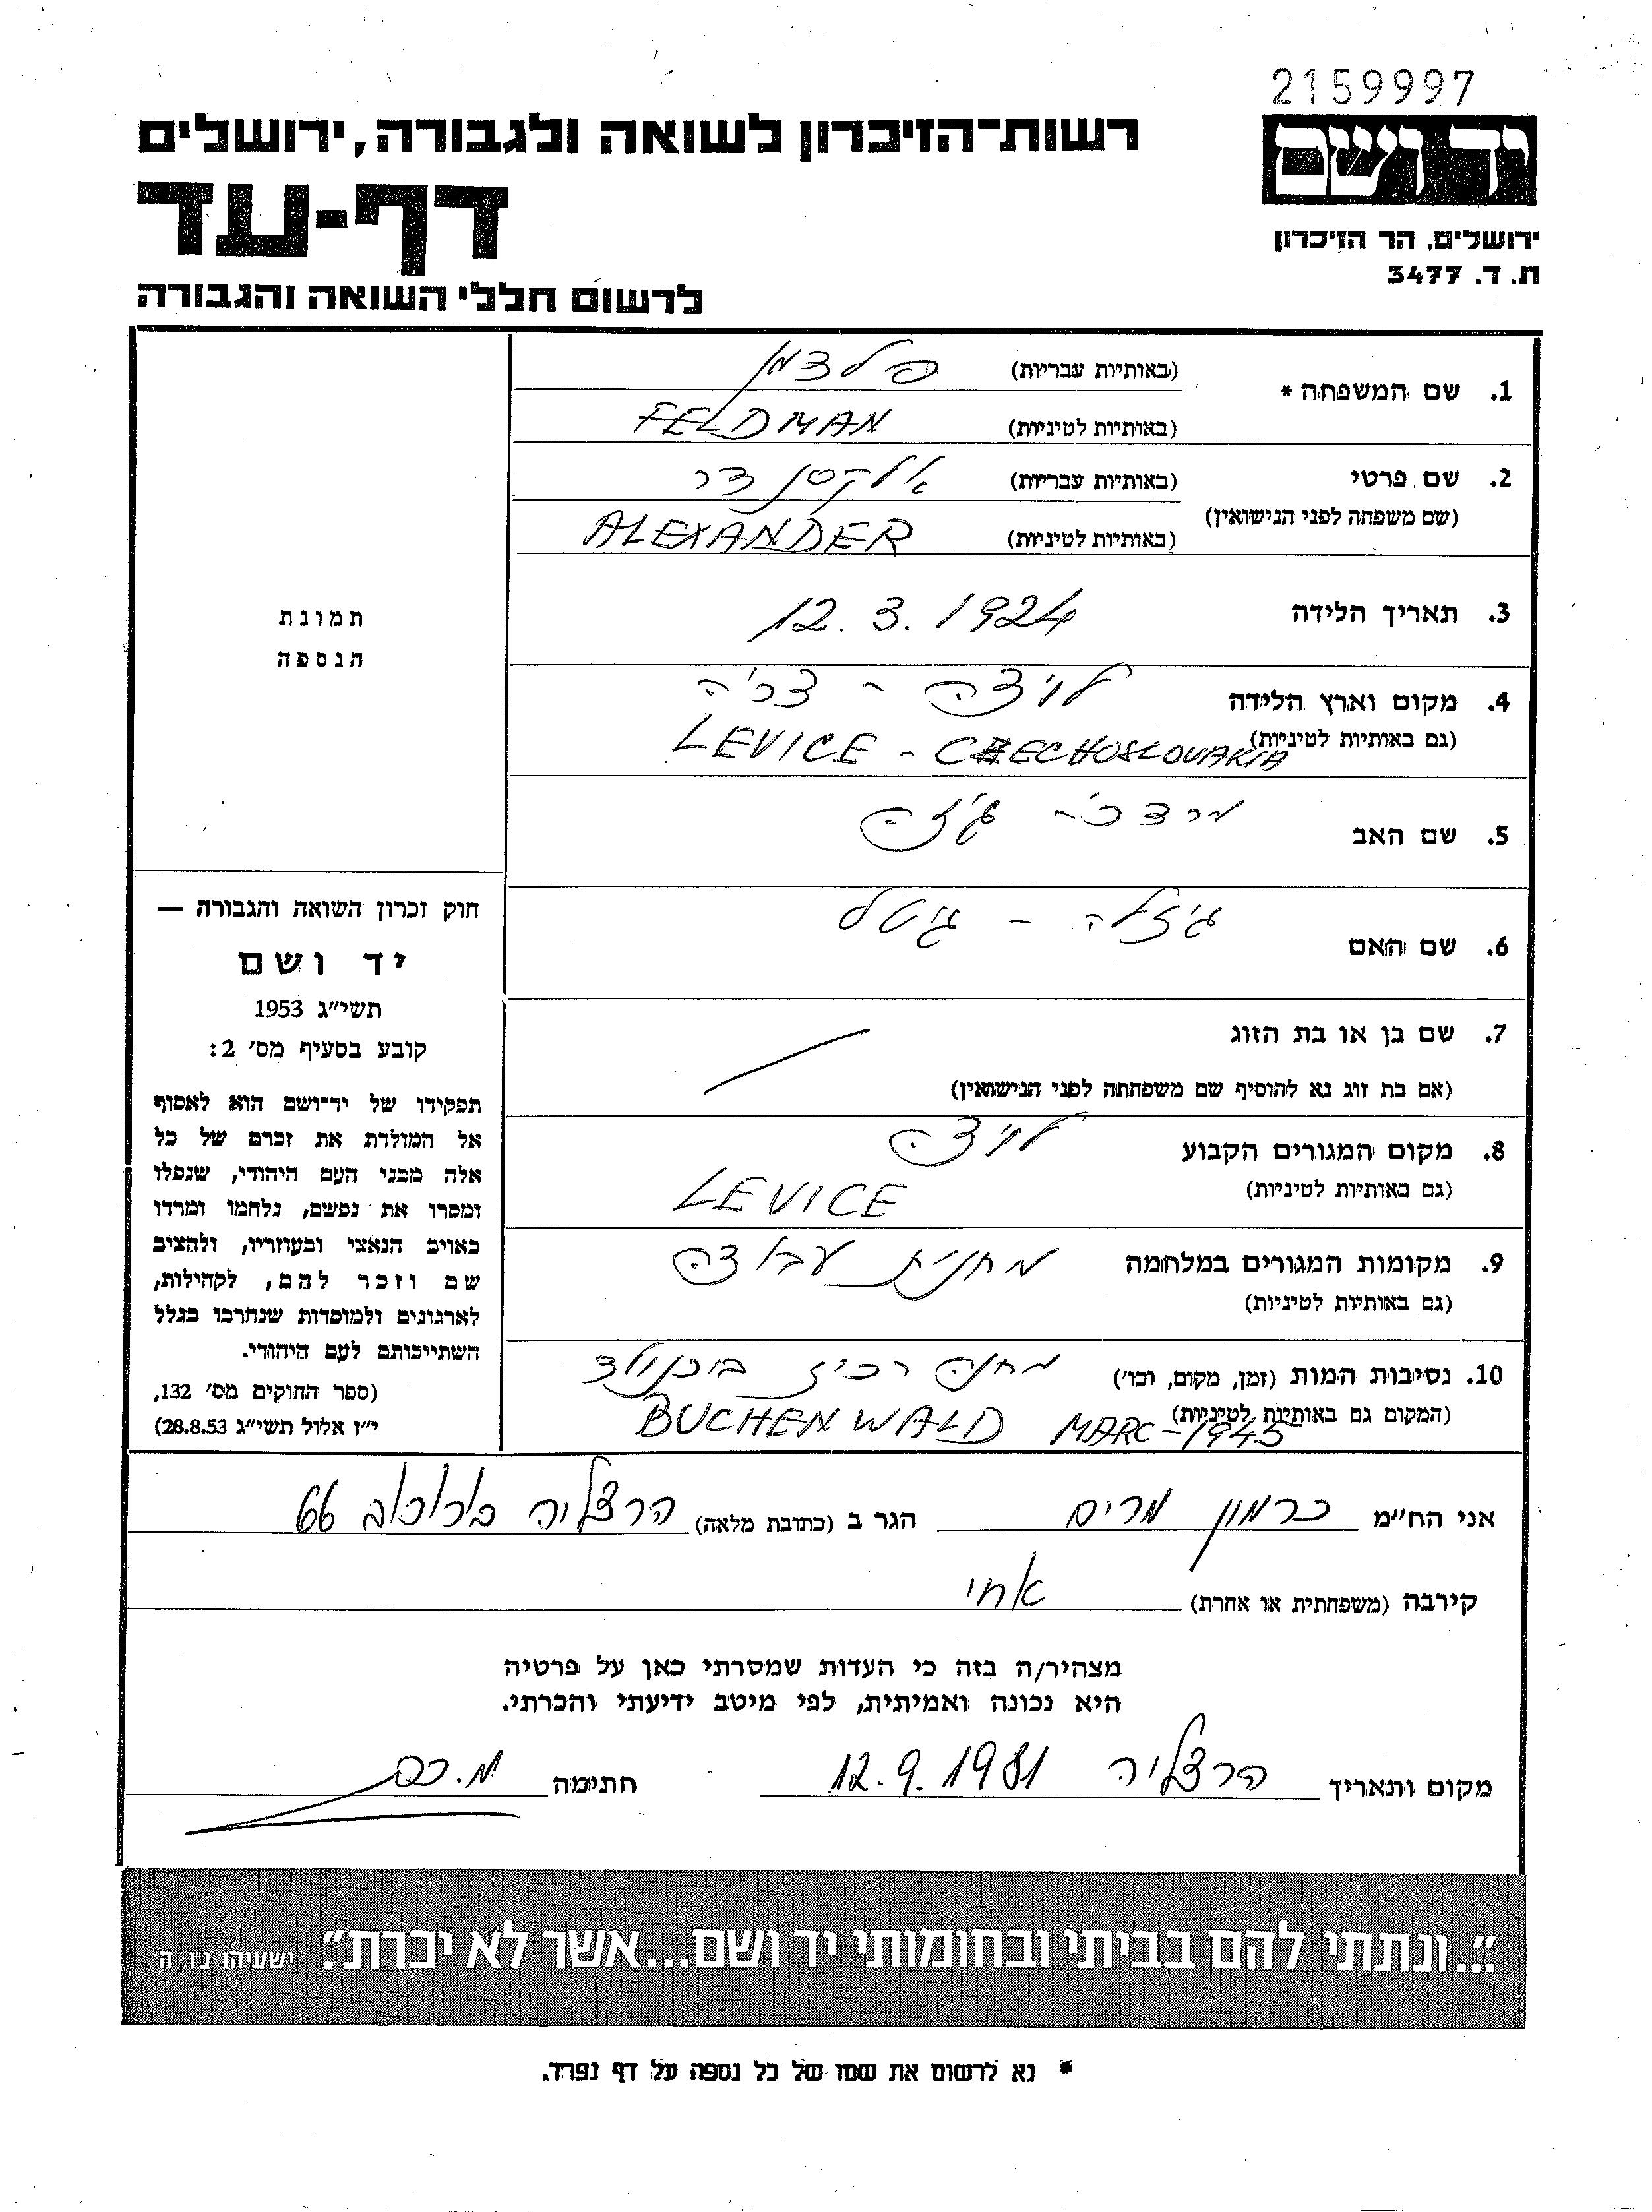 2159997
רשות־הזיכרון לשואה ולגבורה, ירושלים
יד ושם
דף-עד
ירושלים, הר הזיכרון
ת. ד. 3477
לרשום חללי השואה והגבורה
1. שם המשפחה * (באותיות עבריות) פלדמן
(באותיות לטיניות) FELDMAN
2. שם פרטי (באותיות עבריות) אלקסנדר
(שם משפחה לפני הנישואין) (באותיות לטיניות) ALEXANDER
3. תאריך הלידה 12.3.1924
4. מקום וארץ הלידה לויצה - צכ'ה
(גם באותיות לטיניות) LEVICE - CZECHOSLOVAKIA
5. שם האב מרדכי - גזה
6. שם האם גיזלה - גיטל
7. שם בן או בת הזוג
(אם בת זוג נא להוסיף שם משפחתה לפני הנישואין)
8. מקום המגורים הקבוע לויצה
(גם באותיות לטיניות) LEVICE
9. מקומות המגורים במלחמה מחנית עבודה
(גם באותיות לטיניות)
10. נסיבות המות (זמן, מקום, וכו') מחנה רכוז בוכנולד
(המקום גם באותיות לטיניות) BUCHENWALD MARC-1945
תמונת
הנספה
חוק זכרון השואה והגבורה —
יד ושם
תשי״ג 1953
קובע בסעיף מס׳ 2:
תפקידו של יד־ושם הוא לאסוף
אל המולדת את זכרם של כל
אלה מבני העם היהודי, שנפלו
ומסרו את נפשם, נלחמו ומרדו
באויב הנאצי ובעוזריו, ולהציב
שם וזכר להם, לקהילות,
לארגונים ולמוסדות שנחרבו בגלל
השתייכותם לעם היהודי.
(ספר החוקים מס׳ 132,
י״ז אלול תשי״ג 28.8.53)
אני הח״מ כרמון מרים הגר ב (כתובת מלאה) הרצליה 66
קירבה (משפחתית או אחרת) אחי
מצהיר/ה בזה כי העדות שמסרתי כאן על פרטיה
היא נכונה ואמיתית, לפי מיטב ידיעתי והכרתי.
מקום ותאריך הרצליה 12.9.1981 חתימה
״...ונתתי להם בביתי ובחומותי יד ושם...אשר לא יכרת״. ישעיהו נ״ו, ה׳
* נא לרשום את שמו של כל נספה על דף נפרד.